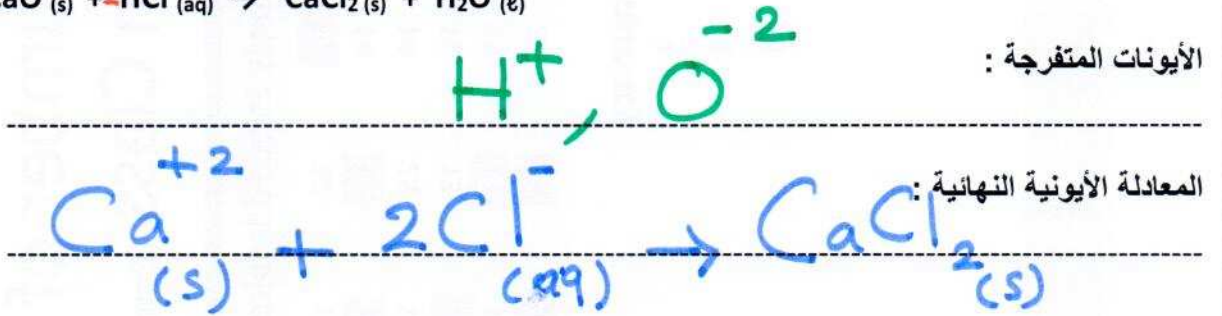 aO (s) + 2HCl (aq) → CaCl₂ (s) + H₂O (ℓ)
الأيونات المتفرجة :
H⁺ , O⁻²
المعادلة الأيونية النهائية :
Ca⁺² (s) + 2Cl⁻ (aq) → CaCl₂ (s)